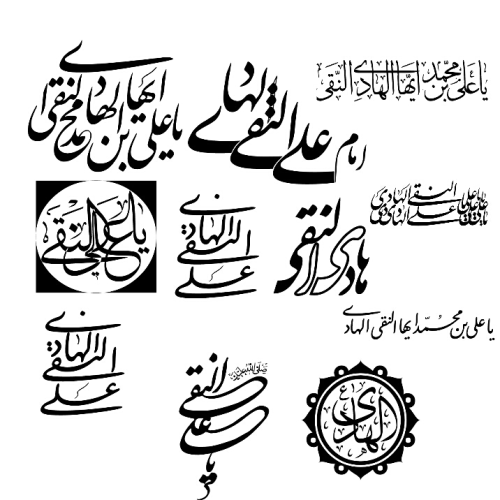 یا علی بن محمد ایها الهادی النقی
امام علی النقی الهادی
یا علی بن محمد ایها الهادی النقی
یا علی النقی
علی النقی الهادی
هادی النقی
علی النقی الهادی
یا علی بن محمد ایها النقی الهادی
علی النقی الهادی
یا علی النقی
الهادی